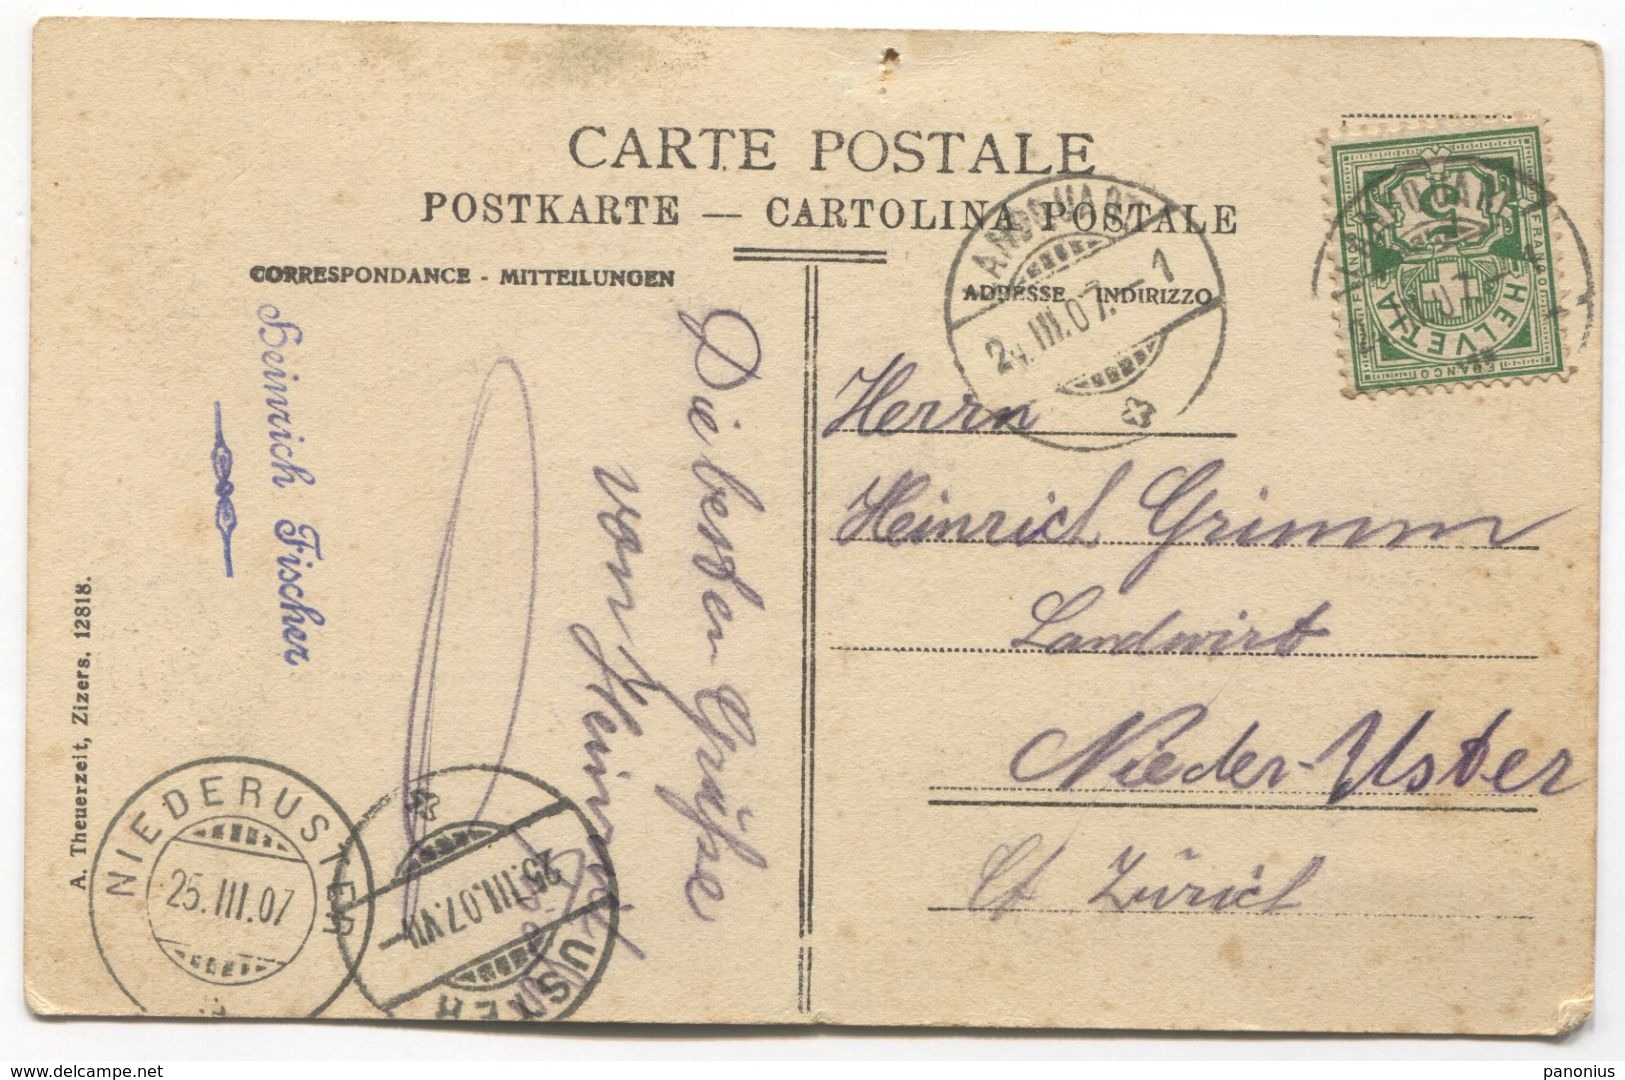 CARTE POSTALE
POSTKARTE — CARTOLINA POSTALE
CORRESPONDANCE - MITTEILUNGEN
ADRESSE INDIRIZZO
Heinrich Fischer
Die besten Grüsse
von Heinrich
Herrn
Heinrich Grimm
Landwirt
Nieder-Uster
Ct Zürich
A. Theuerzeit, Zizers. 12818.
NIEDERUSTER
25.III.07
USTER
25.III.07.VII
III.07.–1
5
FRANCO
HELVETIA
FRANCO
www.delcampe.net
panonius